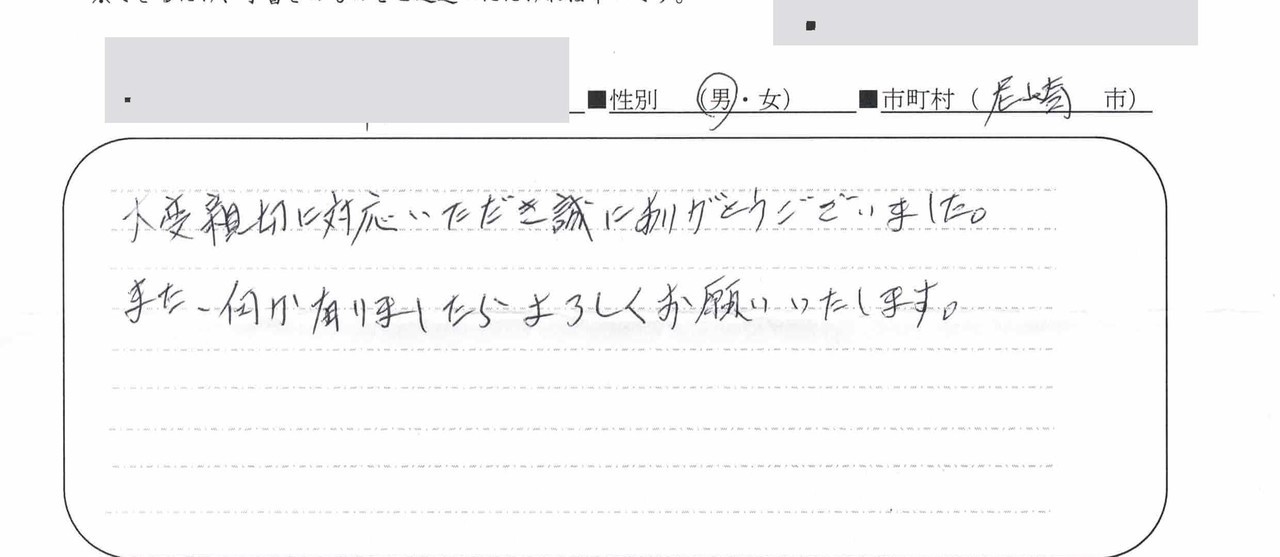 ■性別 (男・女) ■市町村(尼崎 市)
大変親切に対応いただき誠にありがとうございました。
また、何か有りましたらよろしくお願いいたします。